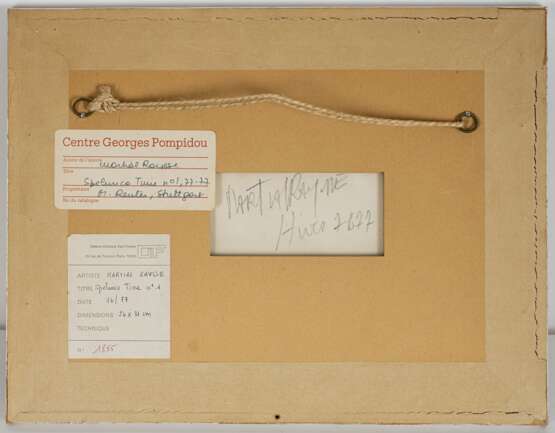 Centre Georges Pompidou
Auteur de l'œuvre Martial Raysse
Titre
Spelunca Time n°1, 77-77
Propriétaire H. Reuter, Stuttgart
No du catalogue
MARTIAL RAYSSE
Hiver 7677
ARTISTE MARTIAL RAYSSE
TITRE Spelunca Time n°1
DATE 76/77
DIMENSIONS 24 x 31 cm
TECHNIQUE
N° 1355